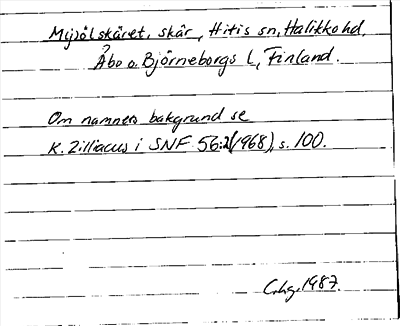 Mjölskäret, skär, Hitis sn, Halikko hd,
Åbo o. Björneborgs l, Finland.
Om namnens bakgrund se
K. Zilliacus i SNF 56:2(1968), s. 100.
1987.